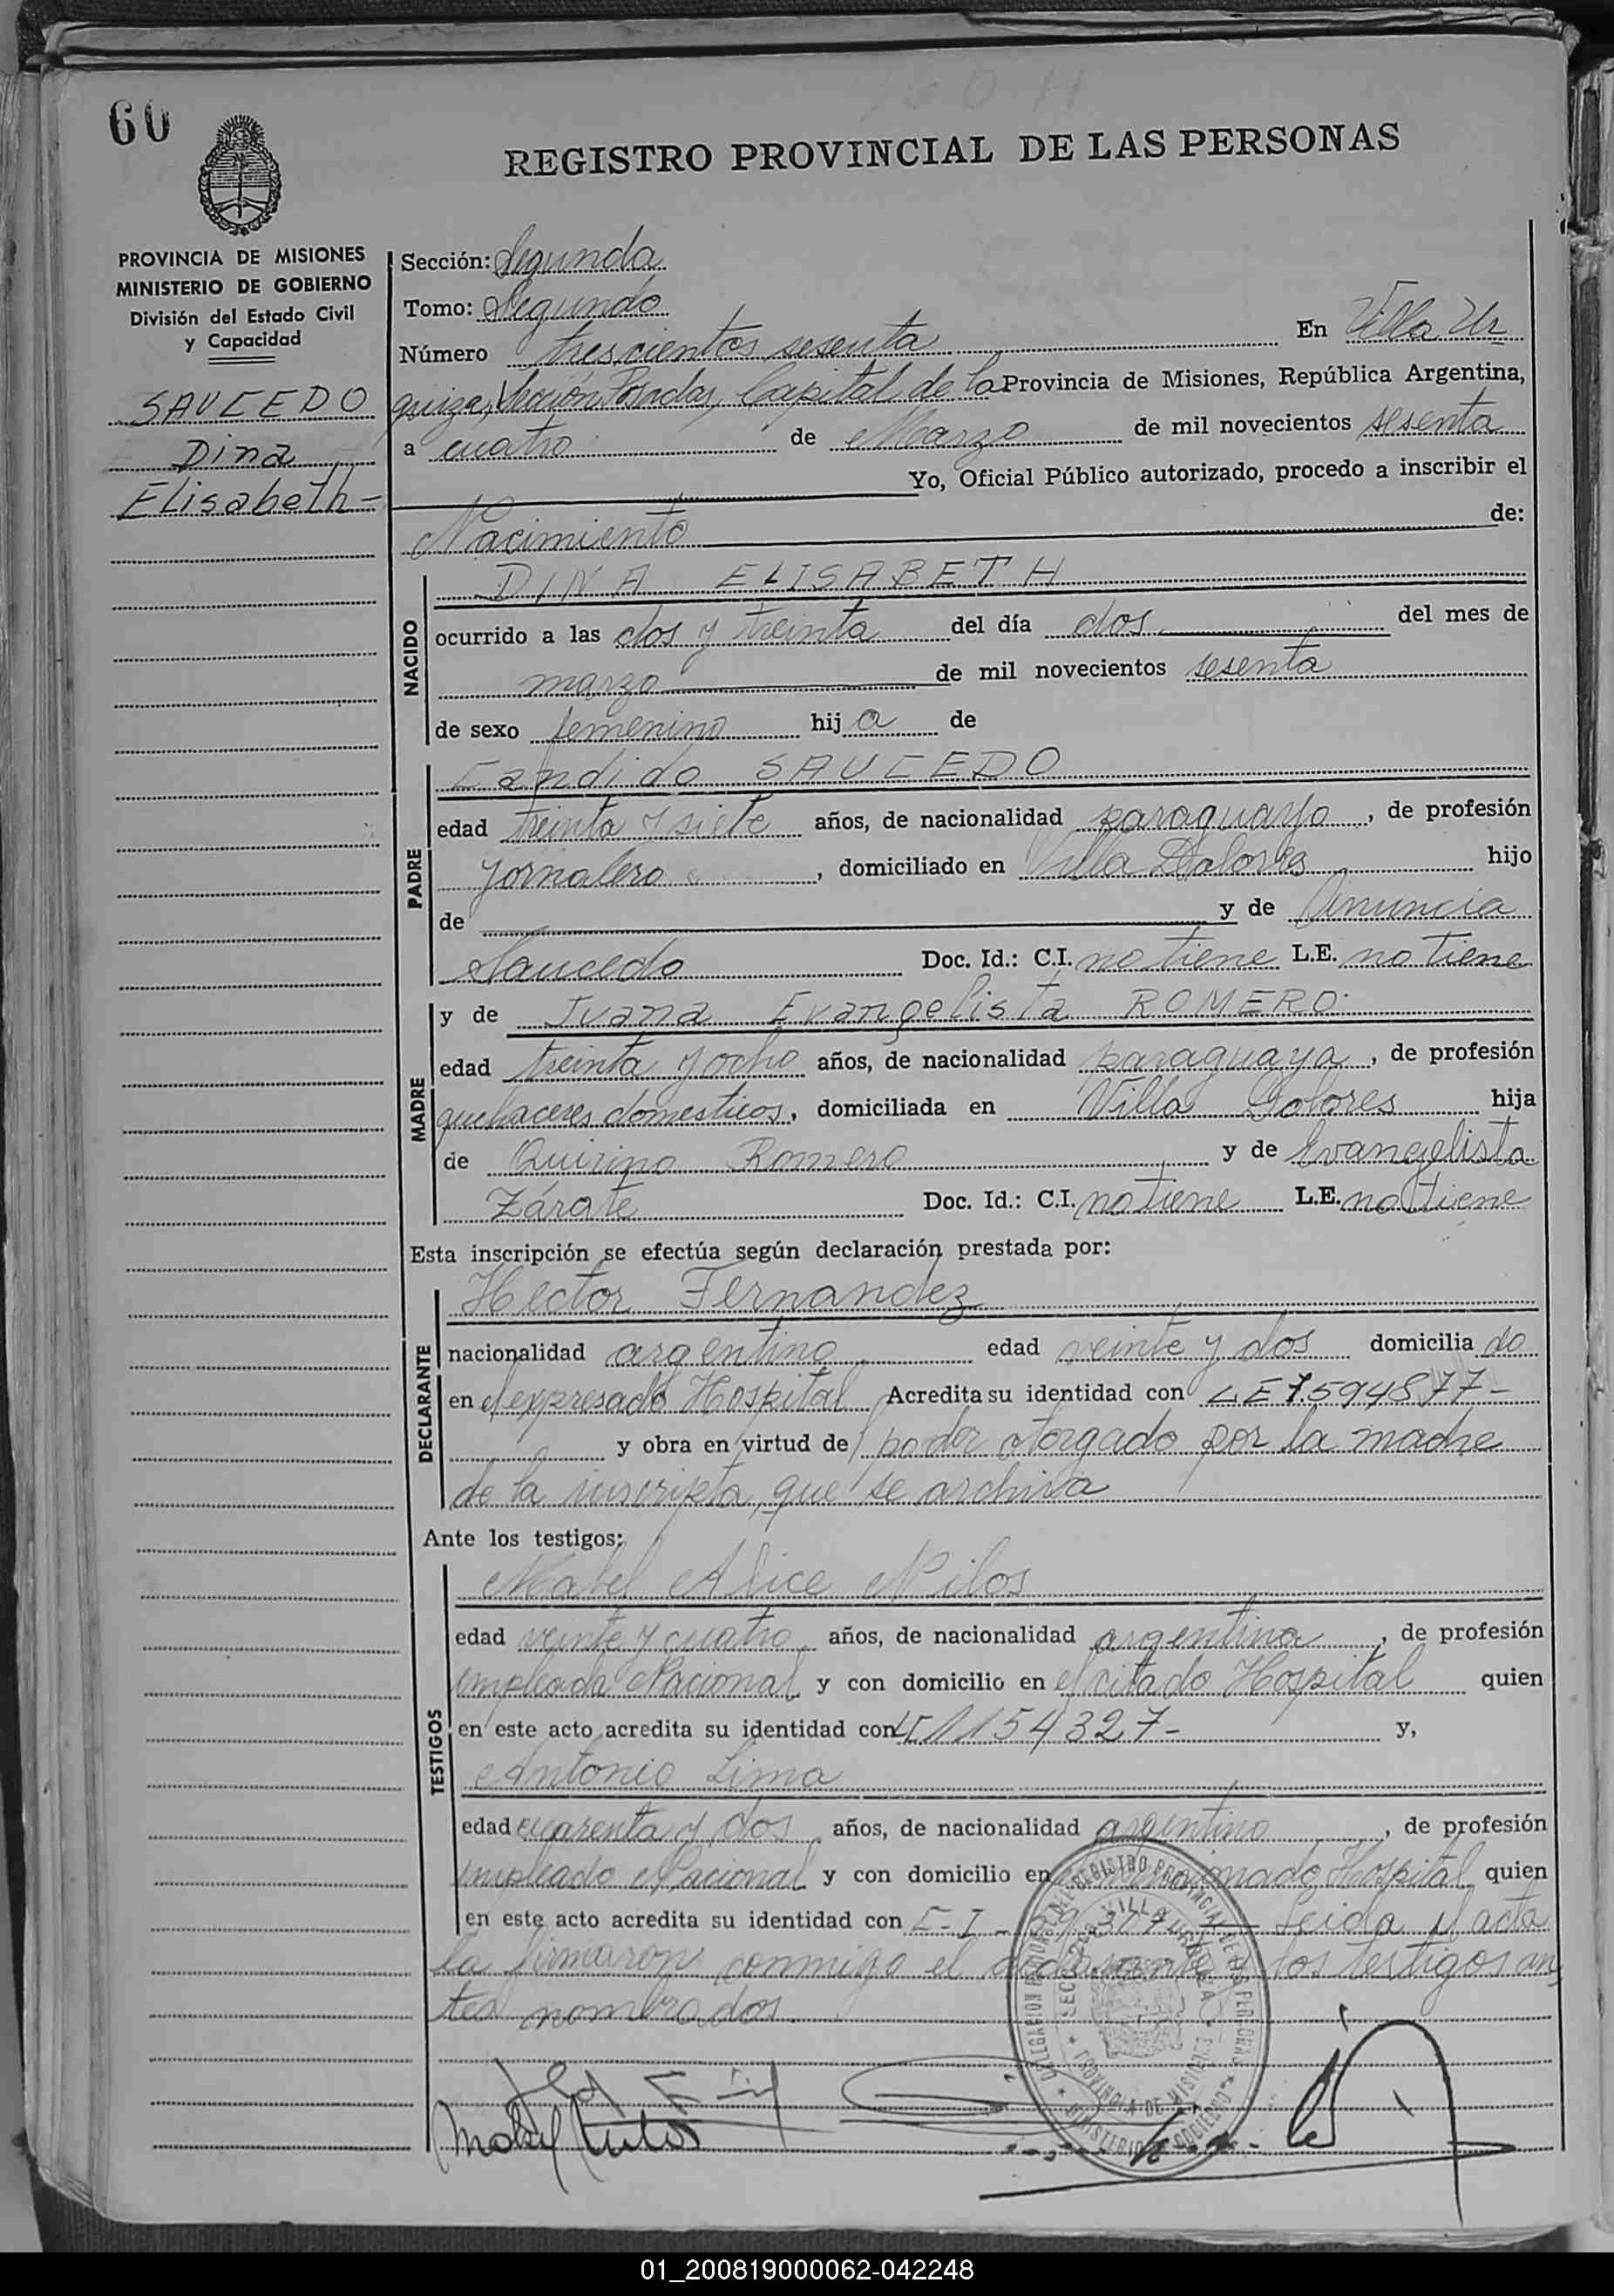 60
REGISTRO PROVINCIAL DE LAS PERSONAS
PROVINCIA DE MISIONES
MINISTERIO DE GOBIERNO
División del Estado Civil
y Capacidad
SAUCEDO
Dina
Elisabeth-
Sección: Segunda
Tomo: Segundo
Número trescientos sesenta En Villa Ur
quiza, Sección Posadas, Capital de la Provincia de Misiones, República Argentina,
a cuatro de Marzo de mil novecientos sesenta
Yo, Oficial Público autorizado, procedo a inscribir el
Nacimiento de:
NACIDO
DINA ELISABETH
ocurrido a las dos y treinta del día dos del mes de
marzo de mil novecientos sesenta
de sexo femenino hij a de
PADRE
Candido SAUCEDO
edad treinta y siete años, de nacionalidad paraguayo, de profesión
jornalero, domiciliado en Villa Dolores hijo
de y de Anuncia
Saucedo Doc. Id.: C.I. no tiene L.E. no tiene
MADRE
y de Juana Evangelista ROMERO
edad treinta y ocho años, de nacionalidad paraguaya, de profesión
quehaceres domesticos, domiciliada en Villa Dolores hija
de Quirino Romero y de Evangelista
Zárate Doc. Id.: C.I. no tiene L.E. no tiene
Esta inscripción se efectúa según declaración prestada por:
DECLARANTE
Hector Fernandez
nacionalidad argentino edad veinte y dos domicilia do
en el expresado Hospital Acredita su identidad con LE 7.594877-
y obra en virtud de poder otorgado por la madre
de la inscripta, que se archiva
Ante los testigos:
TESTIGOS
Mabel Alice Nilos
edad veinte y cuatro años, de nacionalidad argentina, de profesión
empleada Nacional y con domicilio en el citado Hospital quien
en este acto acredita su identidad con LC 1154327- y,
Antonio Lima
edad cuarenta y dos años, de nacionalidad argentino, de profesión
empleado Nacional y con domicilio en Hospital quien
en este acto acredita su identidad con C-I- Leida el acta
la firmaron conmigo el declarante y los testigos an
tes nombrados.
01_200819000062-042248